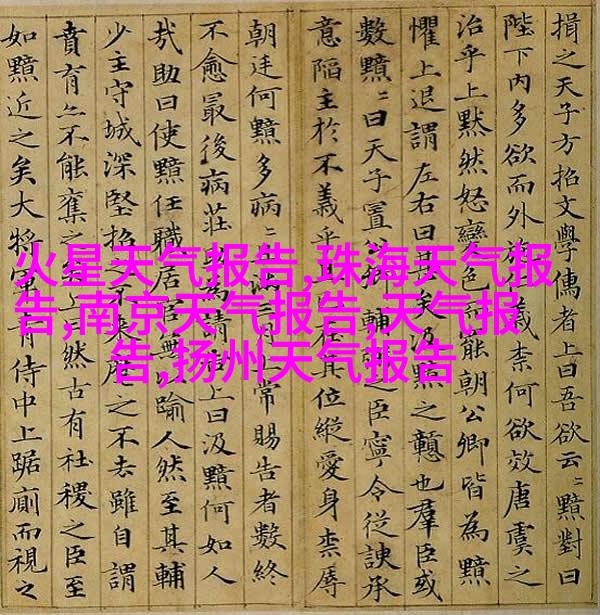 揖之天子方招文學儒者上曰吾欲云〻黯對曰
陛下內多欲而外施義柰何欲效唐虞之
治乎上默然怒變色而罷朝公卿皆為黯
懼上退謂左右曰甚矣汲黯之戇也羣臣或
數黯〻曰天子置公卿輔弼之臣寧令從諛承
意陷主於不義乎在其位縱愛身柰辱
朝廷何黯多病〻滿三月上常賜告者數終
不愈最後病莊助為請告上曰汲黯何如人
㦲助曰使黯任職居官無以踰人然至其輔
少主守城深堅招之不來麾之不去雖自謂
賁育亦不能奪之上然古有社稷之臣至
如黯近之矣大將軍青侍中上踞廁而視之
火星天气报告,珠海天气报
告,南京天气报告,天气报
告,扬州天气报告